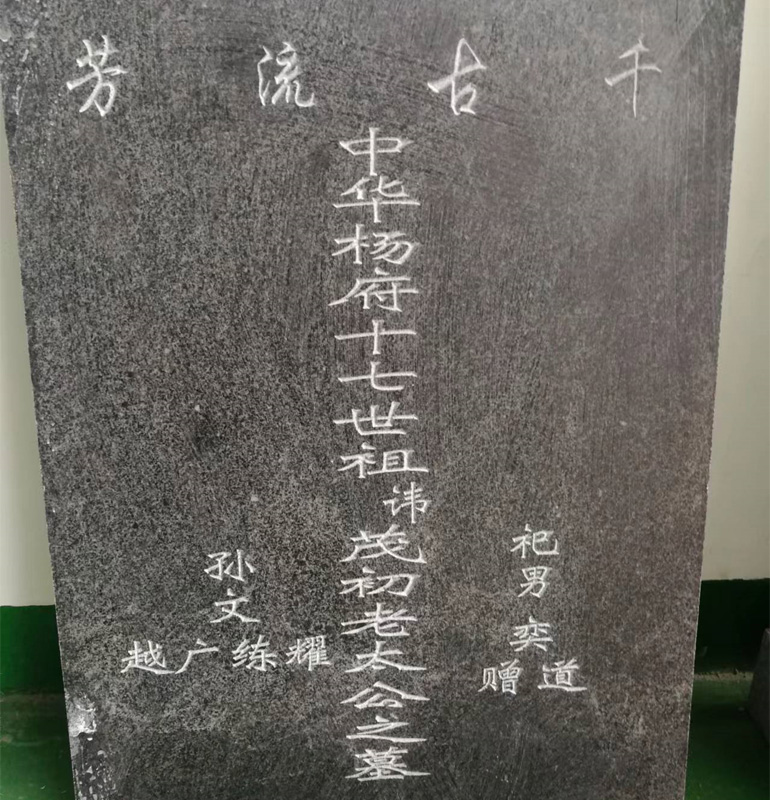 千古流芳
中华杨府十七世祖讳茂初老太公之墓
祀男 奕
道赠
孙文
耀练广越